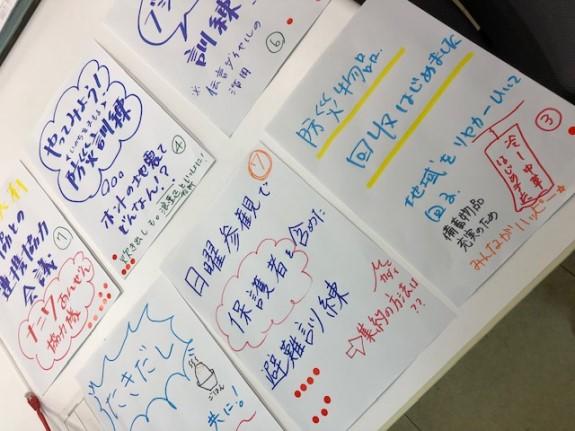 訓練
※伝言ダイヤルの
活用
⑥
やってみよう!
防災訓練
ホントの地震で
どんなん!?
④
協との
連携協力
会議
協力隊
⑦
日曜参観で
保護者も含めた
避難訓練
⇨集約の方法は
??
たきだし
ごはん
共に!
防災物品
回収はじめました
地域をリヤカーひいて
回る
備蓄物品
充実のため
③
冷し中華
はじめました
みんながハッピー☆